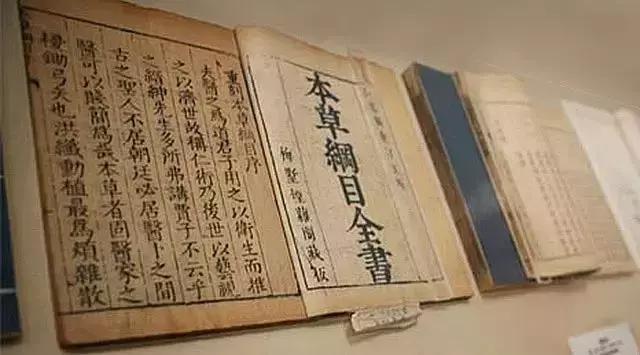 本草綱目全書
梅墅烟蘿閣藏板
重刻本草綱目序
夫醫之爲道君子用之以衛生而推
之以濟世故稱仁術乃後世以藝視
之縉紳先生多所弗講賈子不云乎
古之聖人不居朝廷必居醫卜之間
醫可以賤簡爲哉本草者固醫家之
鋤弓矢也洪纖動植最爲煩雜散